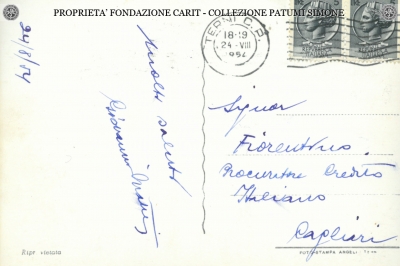 PROPRIETA' FONDAZIONE CARIT - COLLEZIONE PATUMI SIMONE
24/8/54
TERNI C.P.
18-19
24·VIII
1954
Molti saluti
Giovanni
Signor
Fiorentino
Procuratore Credito
Italiano
Cagliari
Ripr. vietata
FOTOSTAMPA ANGELI